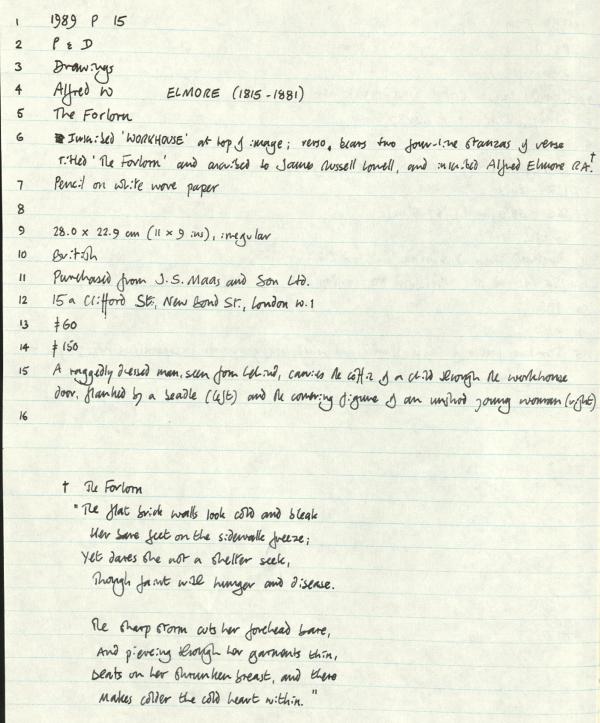 1 1989 P 15
2 P & D
3 Drawings
4 Alfred W ELMORE (1815-1881)
5 The Forlorn
6 Inscribed 'WORKHOUSE' at top of image; verso, bears two four-line stanzas of verse
titled 'The Forlorn' and ascribed to James Russell Lowell, and inscribed Alfred Elmore R.A.†
7 Pencil on white wove paper
8
9 28.0 x 22.9 cm (11 x 9 ins), irregular
10 British
11 Purchased from J.S. Maas and Son Ltd.
12 15a Clifford St., New Bond St., London W.1
13 £60
14 £150
15 A raggedly dressed man, seen from behind, carries the coffin of a child through the workhouse
door, flanked by a beadle (left) and the cowering figure of an unshod young woman (right)
16
† The Forlorn
"The flat brick walls look cold and bleak
Her bare feet on the sidewalk freeze;
Yet dares she not a shelter seek,
Though faint with hunger and disease.
The sharp storm cuts her forehead bare,
And piercing through her garments thin,
Beats on her shrunken breast, and there
Makes colder the cold heart within."